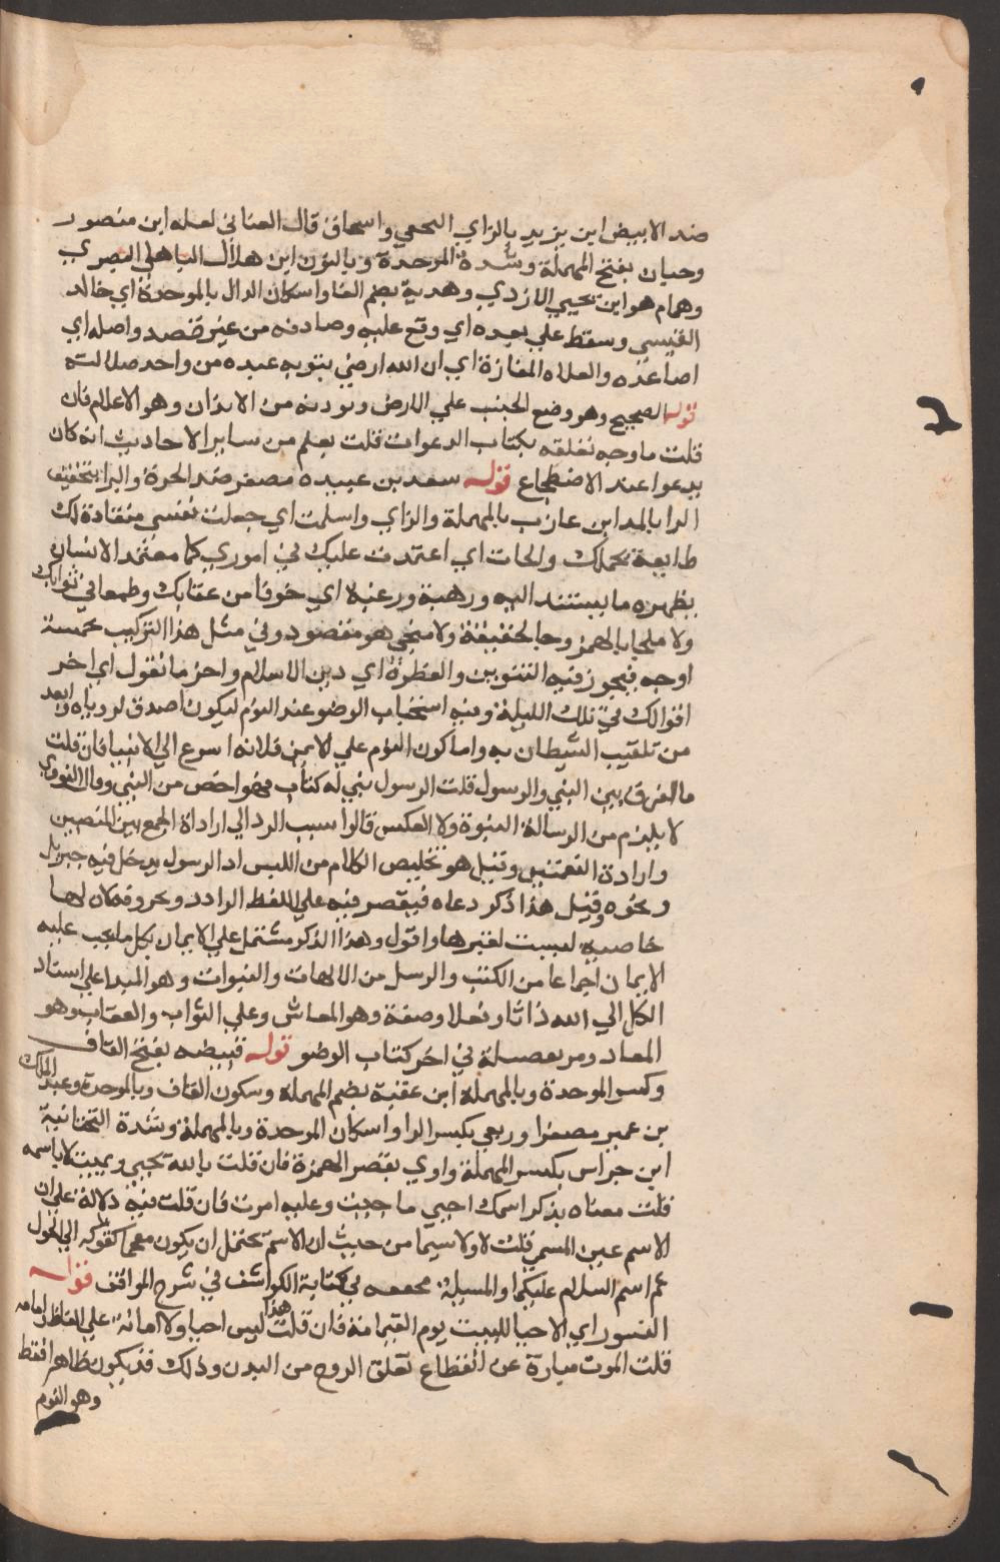 ضد الابيض ابن يزيد بالزاي النخعي واسحاق قال الغساني لعله ابن منصور
وحبان بفتح المهملة وشدة الموحدة وبالنون ابن هلال الباهلي البصري
وهمام هو ابن يحيي الازدي وهدبة بضم الها واسكان الدال بالموحدة ابي خالد
القيسي وسقط علي بعيره اي وقع عليه وصادفه من غير قصد واصله اي
اضاعه والفلاه المفازة اي ان الله ارضي بتوبه عبده من واحد ضلالته
قوله الضجيع وهو وضع الجنب علي الارض ونودنه من الايذان وهو الاعلام فان
قلت ما وجه تعلقه بكتاب الدعوات قلت يعلم من ساير الاحاديث انه كان
يدعوا عند الاضطجاع قوله سعد بن عبيده مصغر ضد الحرة والبرا بتخفيف
الرا بالمد ابن عازب بالمهملة والزاي واسلمت اي جعلت نفسي منقادة لك
طايعة لحكمك والجات اي اعتمدت عليك في اموري كما معتمد الانسان
بظهره ما يستند اليه ورهبة ورغبه اي خوفا من عقابك وطمعا في ثوابك
ولا ملجا بالهمز وجا بالخفيفة ولا منجي هو مقصود وفي مثل هذا التركيب خمسة
اوجه فيجوز فيه التنوين والفطرة اي دين الاسلام واخر ما تقول اي اخر
اقوالك في تلك الليلة وفيه استحباب الوضو عند النوم ليكون اصدق لروياه وابعد
من تلعب الشيطان به واما كون النوم علي الايمن فلانه اسرع الي الانتباه فان قلت
ما الفرق بين النبي والرسول قلت الرسول نبي له كتاب فهو اخص من النبي وقال النووي
لا يلزم من الرسالة النبوة ولا العكس قالوا سبب الرد الي ارادة الجمع بين المنصبين
وارادة النعمتين وقيل هو تخليص الكلام من اللبس اذ الرسول يدخل فيه جبريل
ونحوه وقيل هذا ذكر دعاه فيقتصر فيه علي اللفظ الوارد وبحروفه كان لها
خاصيه ليست لغيرها واقول وهذا الذكر مشتمل علي الايمان بكل ما يجب عليه
الايمان اجماعا من الكتب والرسل من الالهات والنبوات وهو المبدا علي اسناد
الكل الي الله ذاتا وفعلا وصفة وهو المعاش وعلي الثواب والعقاب وهو
المعاد ومر بفصيلة في اخر كتاب الوضو قوله قبيصه بفتح القاف
وكسر الموحدة وبالمهملة ابن عقبة بضم المهملة وسكون القاف وبالموحدة وعبد الملك
بن عمير مصغرا وربعي بكسر الرا واسكان الموحدة وبالمهملة وشدة التحتانية
ابن حراش بكسر المهملة واوي بقصر الهمزة فان قلت بالله تحيي ويميت لا باسمه
قلت معناه بذكر اسمك احيي ما حييت وعليه اموت فان قلت فيه دلالة علي ان
الاسم عين المسمي قلت لا ولا سيما من حيث ان الاسم يحتمل ان يكون مقحما كقوله الي الحول
ثم اسم السلام عليكما والمسيلة في كتابة الكواشف في شرح المواقف قوله
النشور اي الاحيا للبعث يوم القيامة فان قلت هذا ليس احيا ولا اماتة علي الفاظه امامه
قلت الموت عبارة عن انقطاع تعلق الروح من البدن وذلك قد يكون ظاهرا فقط
وهو النوم